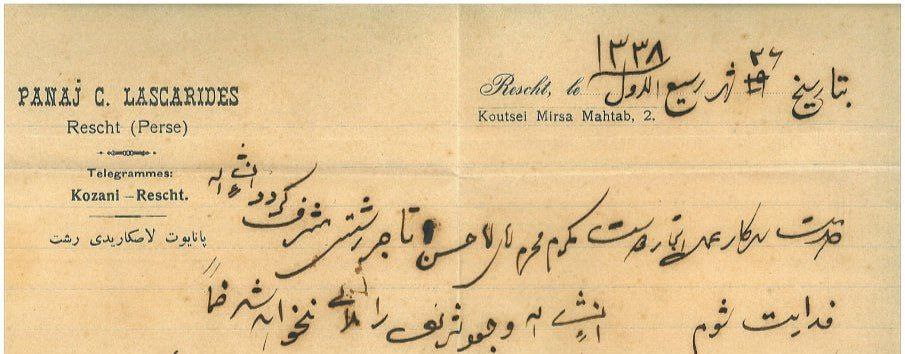 PANAJ C. LASCARIDES
Rescht (Perse)
Telegrammes:
Kozani – Rescht.
پانایوت لاسکاریدی رشت
Rescht, le
Koutsei Mirsa Mahtab, 2.
بتاریخ ۲۶ شهر ربیع الاول ۱۳۳۸
خدمت سرکار مکرم محترم حسن تاجر رشتی مشرف گردد انشاء اله
فدایت شوم انشاء اله وجود شریف را